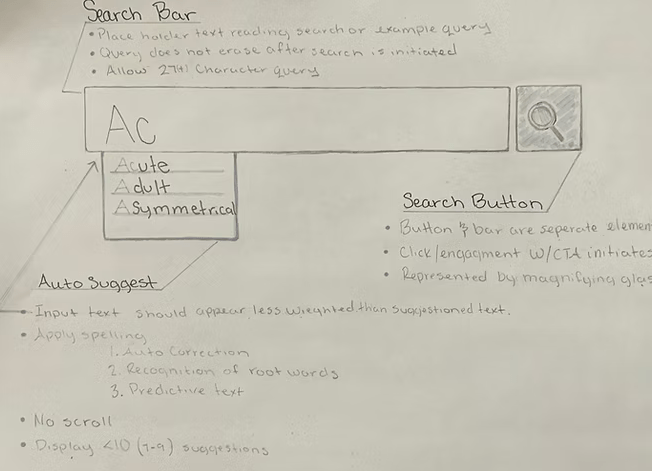 Search Bar
• Place holder text reading search or example query
• Query does not erase after search is initiated
• Allow 27(+) Character query
Ac
Acute
Adult
Asymmetrical
Search Button
• Button & bar are seperate elemen
• Click/engagment w/CTA initiates
• Represented by magnifying glas
Auto Suggest
• Input text should appear less wieghted than suggestioned text.
• Apply spelling
1. Auto Correction
2. Recognition of root words
3. Predictive text
• No scroll
• Display <10 (7-9) suggestions